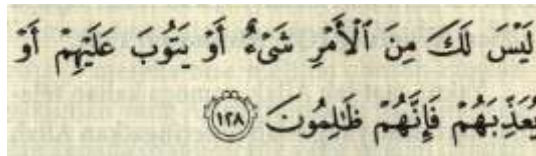 لَيْسَ لَكَ مِنَ ٱلْأَمْرِ شَىْءٌ أَوْ يَتُوبَ عَلَيْهِمْ أَوْ
يُعَذِّبَهُمْ فَإِنَّهُمْ ظَـٰلِمُونَ ١٢٨